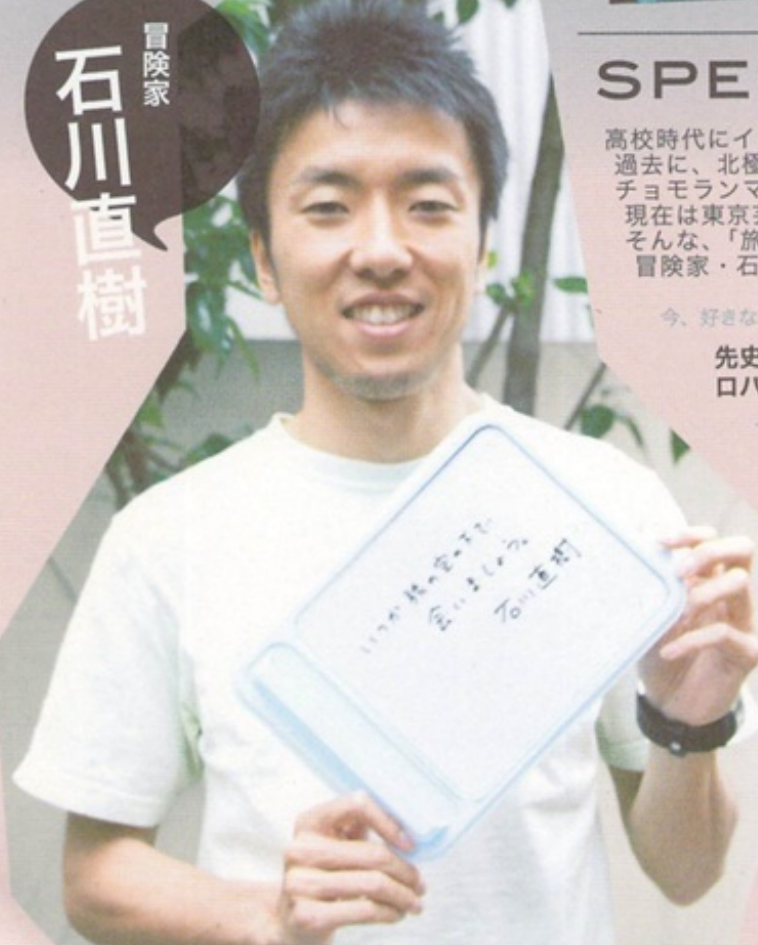 冒険家
石川直樹
SPE
高校時代にイ
過去に、北極
チョモランマ
現在は東京芸
そんな、「旅
冒険家・石
今、好きな
先史
ロバ
いつか旅の空の下で
会いましょう。
石川直樹